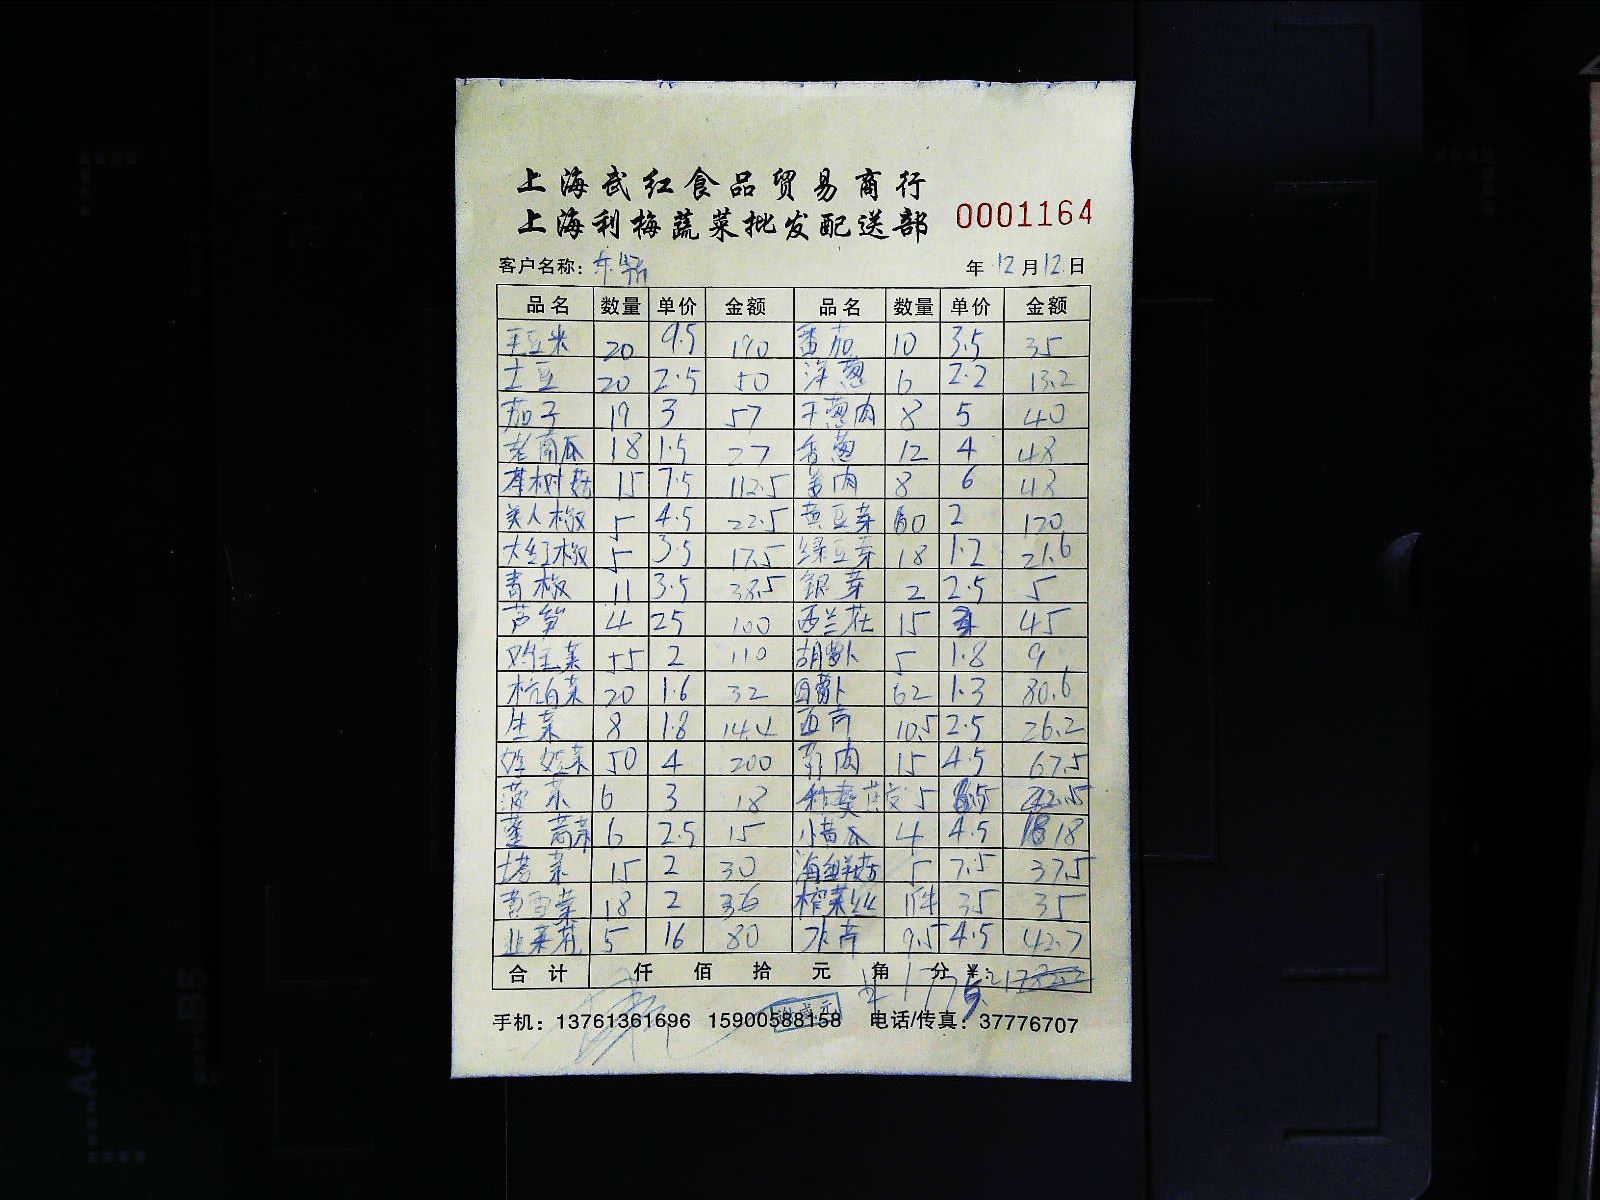 上海武红食品贸易商行
上海利梅蔬菜批发配送部 0001164
客户名称: 年 12 月 12 日
品名 数量 单价 金额 品名 数量 单价 金额
毛豆米 20 9.5 190 番茄 10 3.5 35
土豆 20 2.5 50 洋葱 6 2.2 13.2
茄子 19 3 57 干葱肉 8 5 40
老南瓜 18 1.5 27 香葱 12 4 48
茶树菇 15 7.5 112.5 姜肉 8 6 48
美人椒 5 4.5 22.5 黄豆芽 60 2 120
大红椒 5 3.5 17.5 绿豆芽 18 1.2 21.6
青椒 11 3.5 38.5 银芽 2 2.5 5
芦笋 4 25 100 西兰花 15 3 45
鸡毛菜 55 2 110 胡萝卜 5 1.8 9
杭白菜 20 1.6 32 白萝卜 62 1.3 80.6
生菜 8 1.8 14.4 西芹 10.5 2.5 26.2
娃娃菜 50 4 200 肉 15 4.5 67.5
菠菜 6 3 18 5 8.5 42.5
蓬蒿菜 6 2.5 15 小黄瓜 4 4.5 18
塔菜 15 2 30 海鲜菇 5 7.5 37.5
雪菜 18 2 36 榨菜丝 1件 35 35
韭菜花 5 16 80 水芹 9.5 4.5 42.7
合计 仟 佰 拾 元 角 分 ¥:
手机: 13761361696 15900588158 电话/传真: 37776707